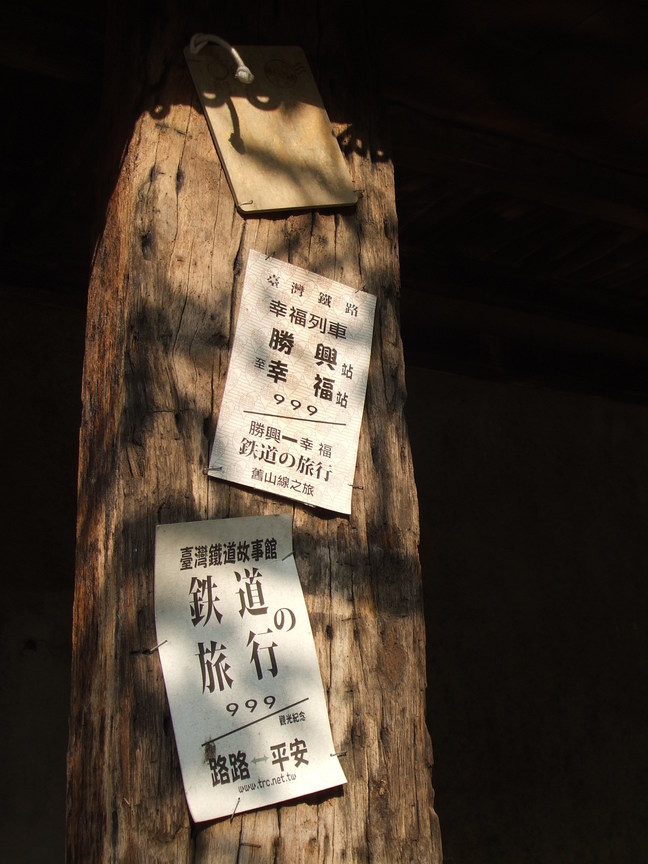 臺灣鐵路
幸福列車
勝興站
至幸福站
999
勝興—幸福
鉄道の旅行
舊山線之旅
臺灣鐵道故事館
鉄道の
旅行
999
觀光紀念
路路↔平安
www.trc.net.tw